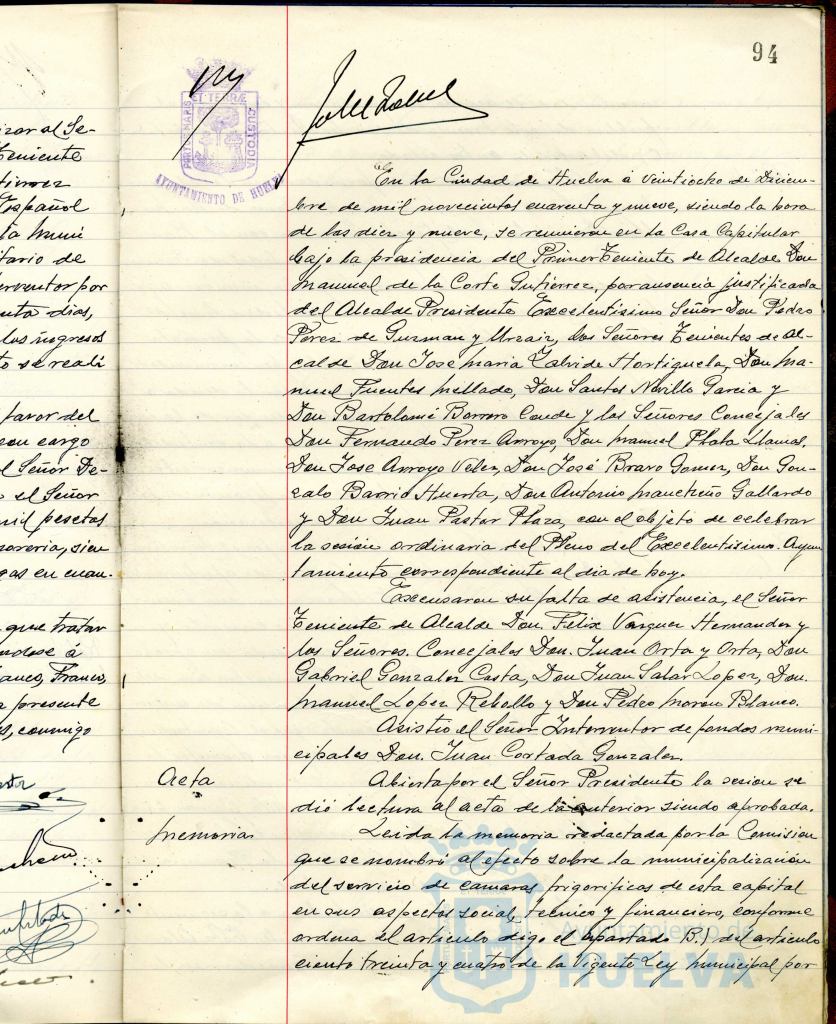 94
PORTUS MARIS ET TERRÆ CUSTODIA
AYUNTAMIENTO DE HUELVA
izar al Se-
Teniente
tierrez
Español
ta Muni
itario de
erventor por
enta dias,
los ingresos
to se reali
favor del
con cargo
l Señor De-
o el Señor
mil pesetas
sorería, sien
gas en cuan-
que tratar
ndose á
lanco, Franco,
a presente
s, conmigo
En la Ciudad de Huelva á veintiocho de Diciem-
bre de mil novecientos cuarenta y nueve, siendo la hora
de las diez y nueve, se reunieron en la Casa Capitular
bajo la presidencia del Primer Teniente de Alcalde Don
Manuel de la Corte Gutierrez, por ausencia justificada
del Alcalde Presidente Excelentisimo Señor Don Pedro
Perez de Guzman y Urzaiz, los Señores Tenientes de Al-
calde Don Jose Maria Zalvide Hortiguela, Don Ma-
nuel Fuentes Mellado, Don Santos Novillo Garcia y
Don Bartolomé Borrero Conde y los Señores Concejales
Don Fernando Perez Arroyo, Don Manuel Plata Llamas,
Don Jose Arroyo Velez, Don José Bravo Gomez, Don Gon-
zalo Barrio Huerta, Don Antonio Mancheño Gallardo
y Don Juan Pastor Plaza, con el objeto de celebrar
la sesión ordinaria del Pleno del Excelentisimo. Ayun
tamiento correspondiente al dia de hoy.
Excusaron su falta de asistencia, el Señor
Teniente de Alcalde Don. Felix Vazquez Hernandez y
los Señores. Concejales Don. Juan Orta y Orta, Don
Gabriel Gonzalez Costa, Don Juan Salar Lopez, Don.
Manuel Lopez Rebollo y Don Pedro Moron Blanco.
Asistio el Señor Interventor de fondos muni-
cipales Don. Juan Cortada Gonzalez.
Acta
Abierta por el Señor Presidente la sesion se
dió lectura al acta de la anterior siendo aprobada.
Memorias
Leida la memoria redactada por la Comision
que se nombró al efecto sobre la municipalización
del servicio de camaras frigorificas de esta capital
en sus aspectos social, tecnico y financiero, conforme
ordena el articulo digo el apartado B.) del articulo
ciento treinta y cuatro de la Vigente Ley Municipal por
Ayuntamiento de
HUELVA